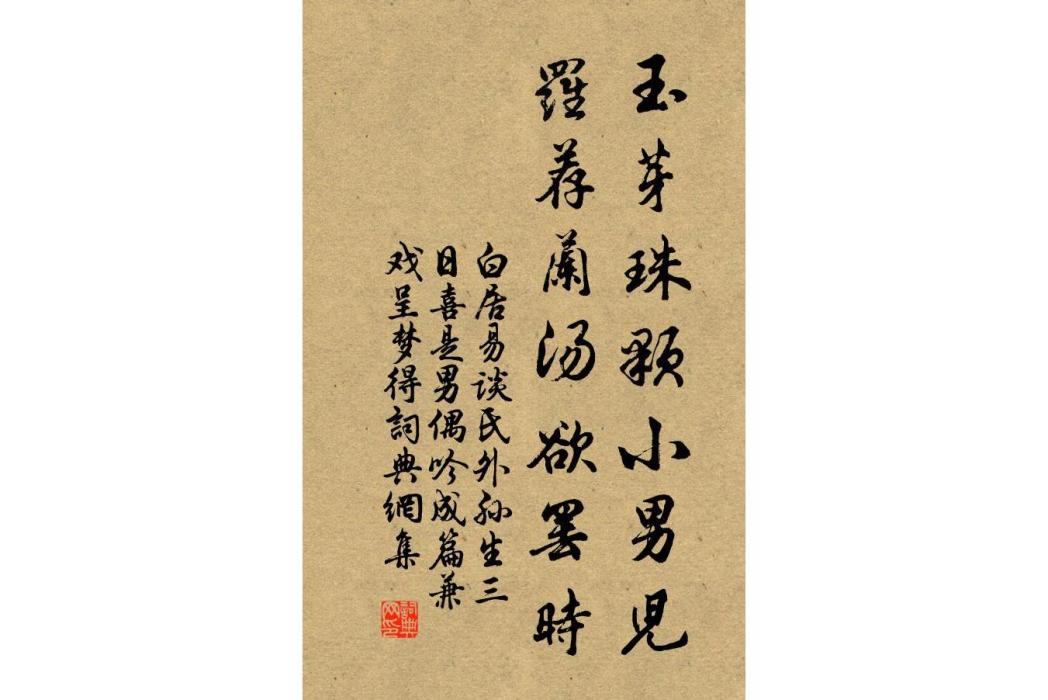 玉芽珠顆小男児
羅荐蘭湯欲罢時
白居易谈氏外孙生三
日喜是男偶吟成篇兼
戏呈梦得詞典網集